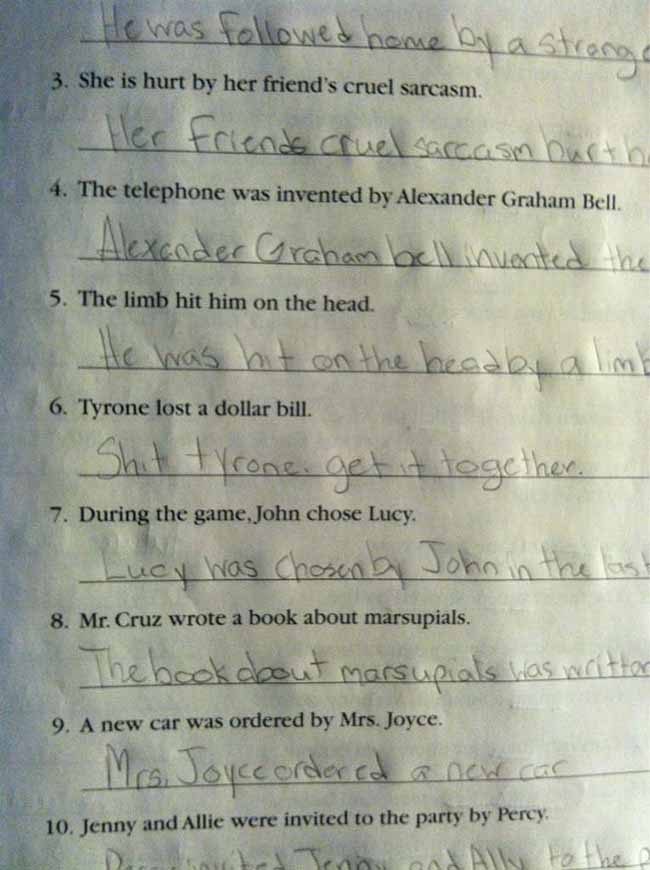 He was followed home by a strange
3. She is hurt by her friend's cruel sarcasm.
Her Friends cruel sarcasm hurt h
4. The telephone was invented by Alexander Graham Bell.
Alexander Graham bell invented the
5. The limb hit him on the head.
He was hit on the head by a limb
6. Tyrone lost a dollar bill.
Shit tyrone. get it together.
7. During the game, John chose Lucy.
Lucy was chosen by John in the last
8. Mr. Cruz wrote a book about marsupials.
The book about marsupials was writtan
9. A new car was ordered by Mrs. Joyce.
Mrs. Joyce ordered a new car
10. Jenny and Allie were invited to the party by Percy.
invited Jenny and Ally to the p